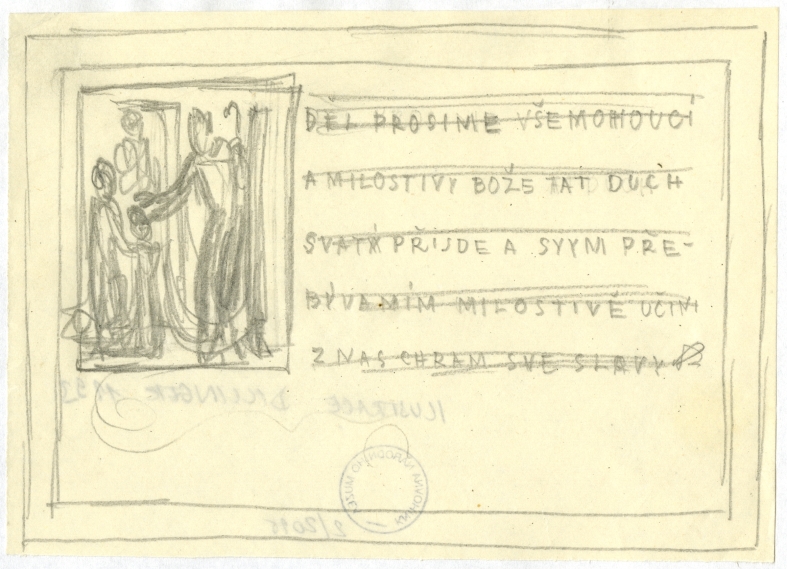 DĚL PROSIME VŠEMOHOUCÍ
A MILOSTIVÝ BOŽE ŤAŤ DUCH
SVATÝ PŘIJDE A SVYM PŘE-
BÝVANÍM MILOSTIVĚ UČINI
Z NAS CHRAM SVE SLAVY
ILUSTRACE DILLINGER 1953
2/2015